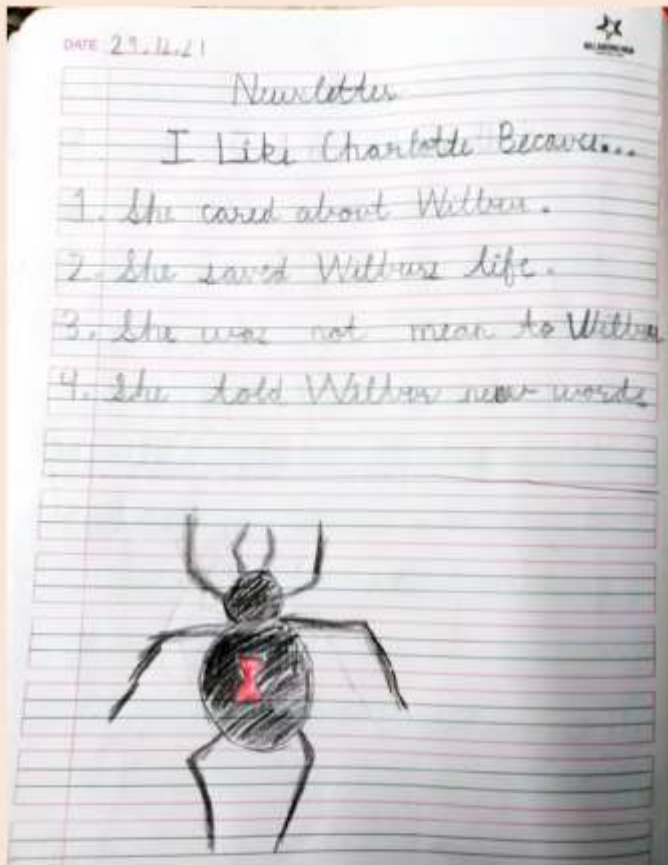 DATE 29.12.21
Newsletter
I Like Charlotte Because...
1. She cared about Wilbur.
2. She saved Wilburs life.
3. She was not mean to Wilbur
4. She told Wilbur new words